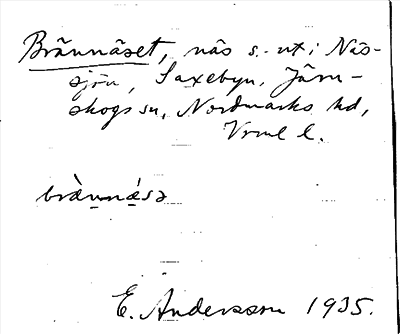 Brännäset, näs s. ut i Näs-
sjön, Saxebyn, Järn-
skogs sn, Nordmarks hd,
Vrml l.
bràn̲nä̲́sə
E. Andersson 1935.